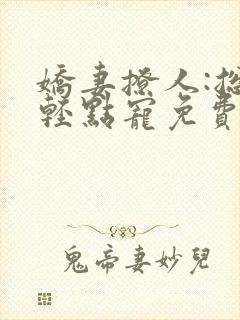 嬌妻撩人:總
輕點寵免費
鬼帝妻妙兒